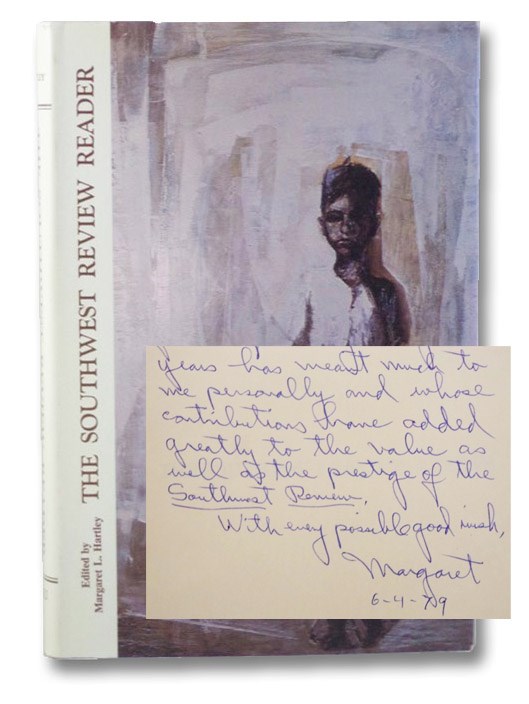 THE SOUTHWEST REVIEW READER
Edited by
Margaret L. Hartley
years has meant much to
me personally and whose
contributions have added
greatly to the value as
well as the prestige of the
Southwest Review.
With every possible good wish,
Margaret
6-4-79